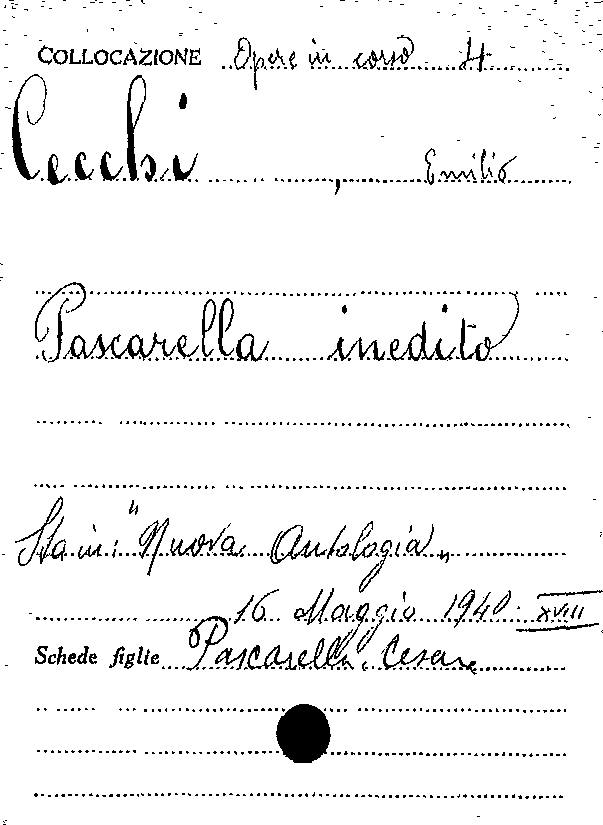 COLLOCAZIONE Opere in corso 4
Cecchi, Emilio
Pascarella inedito
Sta in: "Nuova Antologia„
16 Maggio 1940. XVIII
Schede figlie Pascarella, Cesare